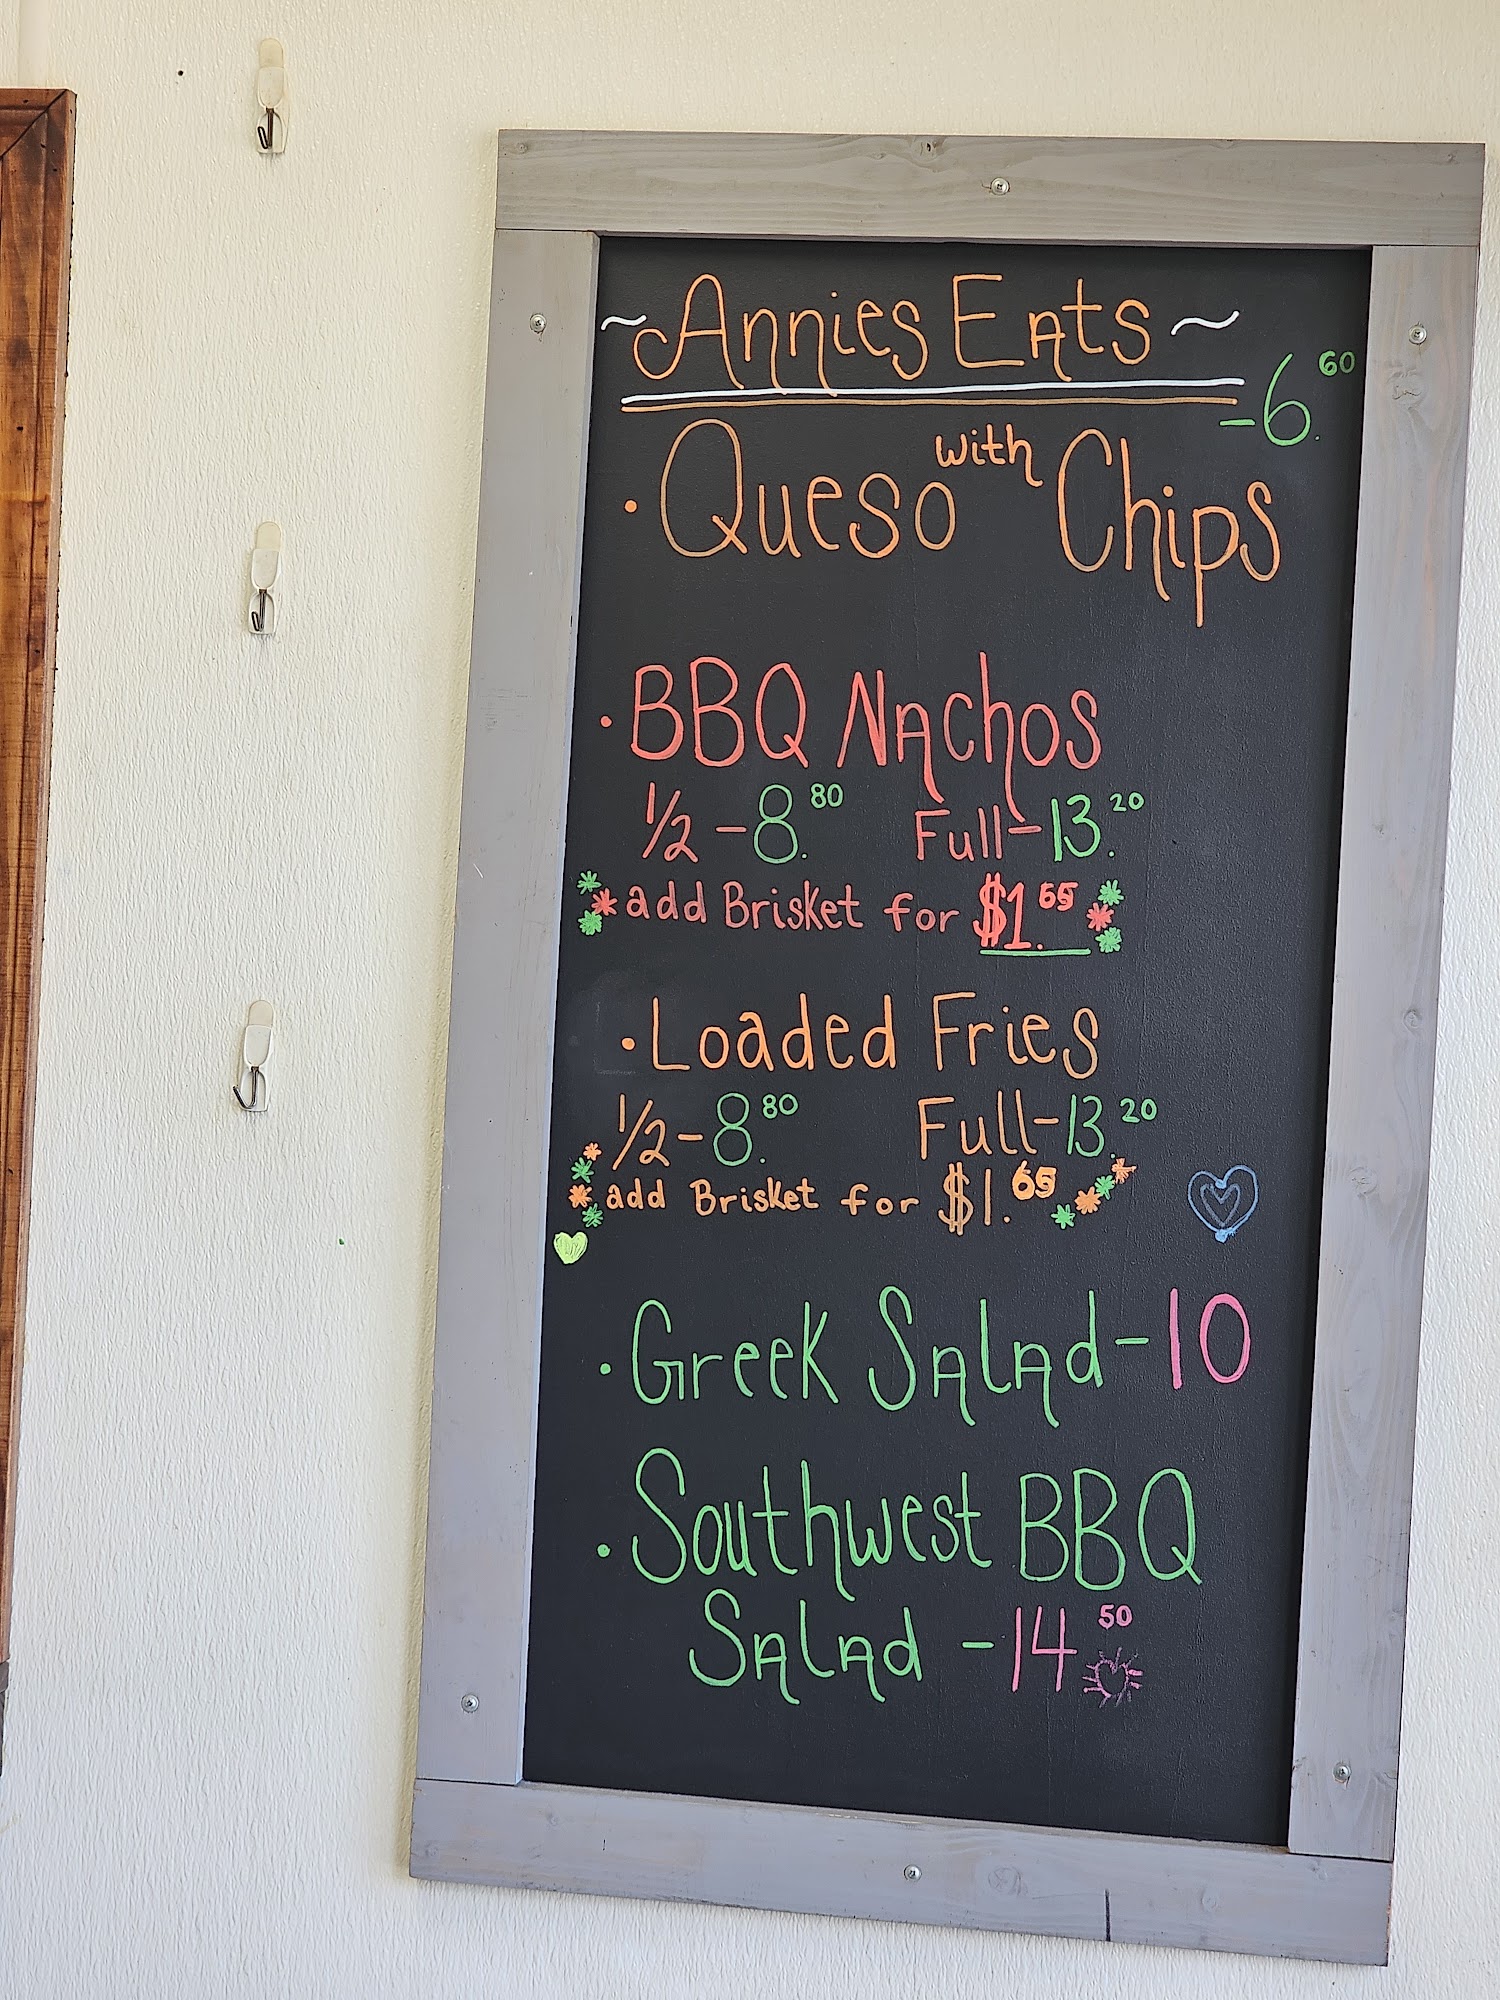 ~Annies Eats~
-6.60
• Queso with Chips
• BBQ Nachos
1/2 -8.80 Full-13.20
add Brisket for $1.65
• Loaded Fries
1/2-8.80 Full-13.20
add Brisket for $1.65
• Greek Salad-10
• Southwest BBQ
Salad -14 50